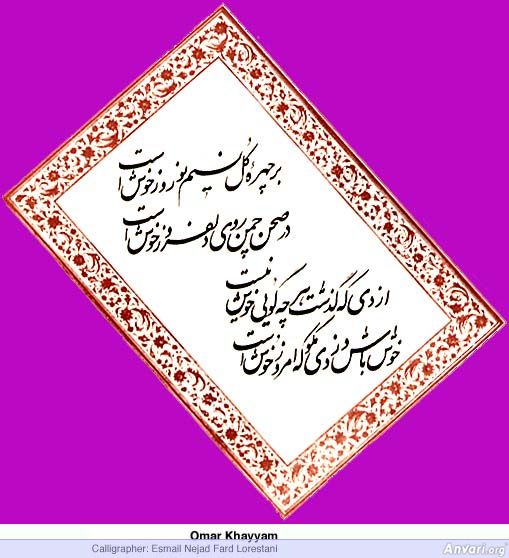 بر چهرهٔ گل نسیم نوروز خوش است
در صحن چمن روی دلفروز خوش است
از دی که گذشت هر چه گویی خوش نیست
خوش باش و ز دی مگو که امروز خوش است
Omar Khayyam
Calligrapher: Esmail Nejad Fard Lorestani
Anvari.org